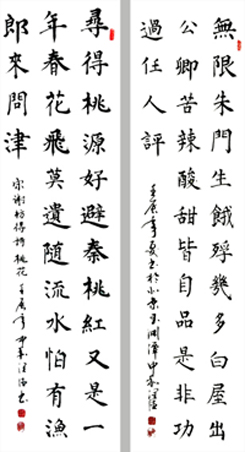 無限朱門生餓殍幾多白屋出
公卿苦辣酸甜皆自品是非功
過任人評
年夏書於北京玉淵潭
尋得桃源好避秦桃紅又是一
年春花飛莫遣隨流水怕有漁
郎來問津
宋謝枋得詩桃花